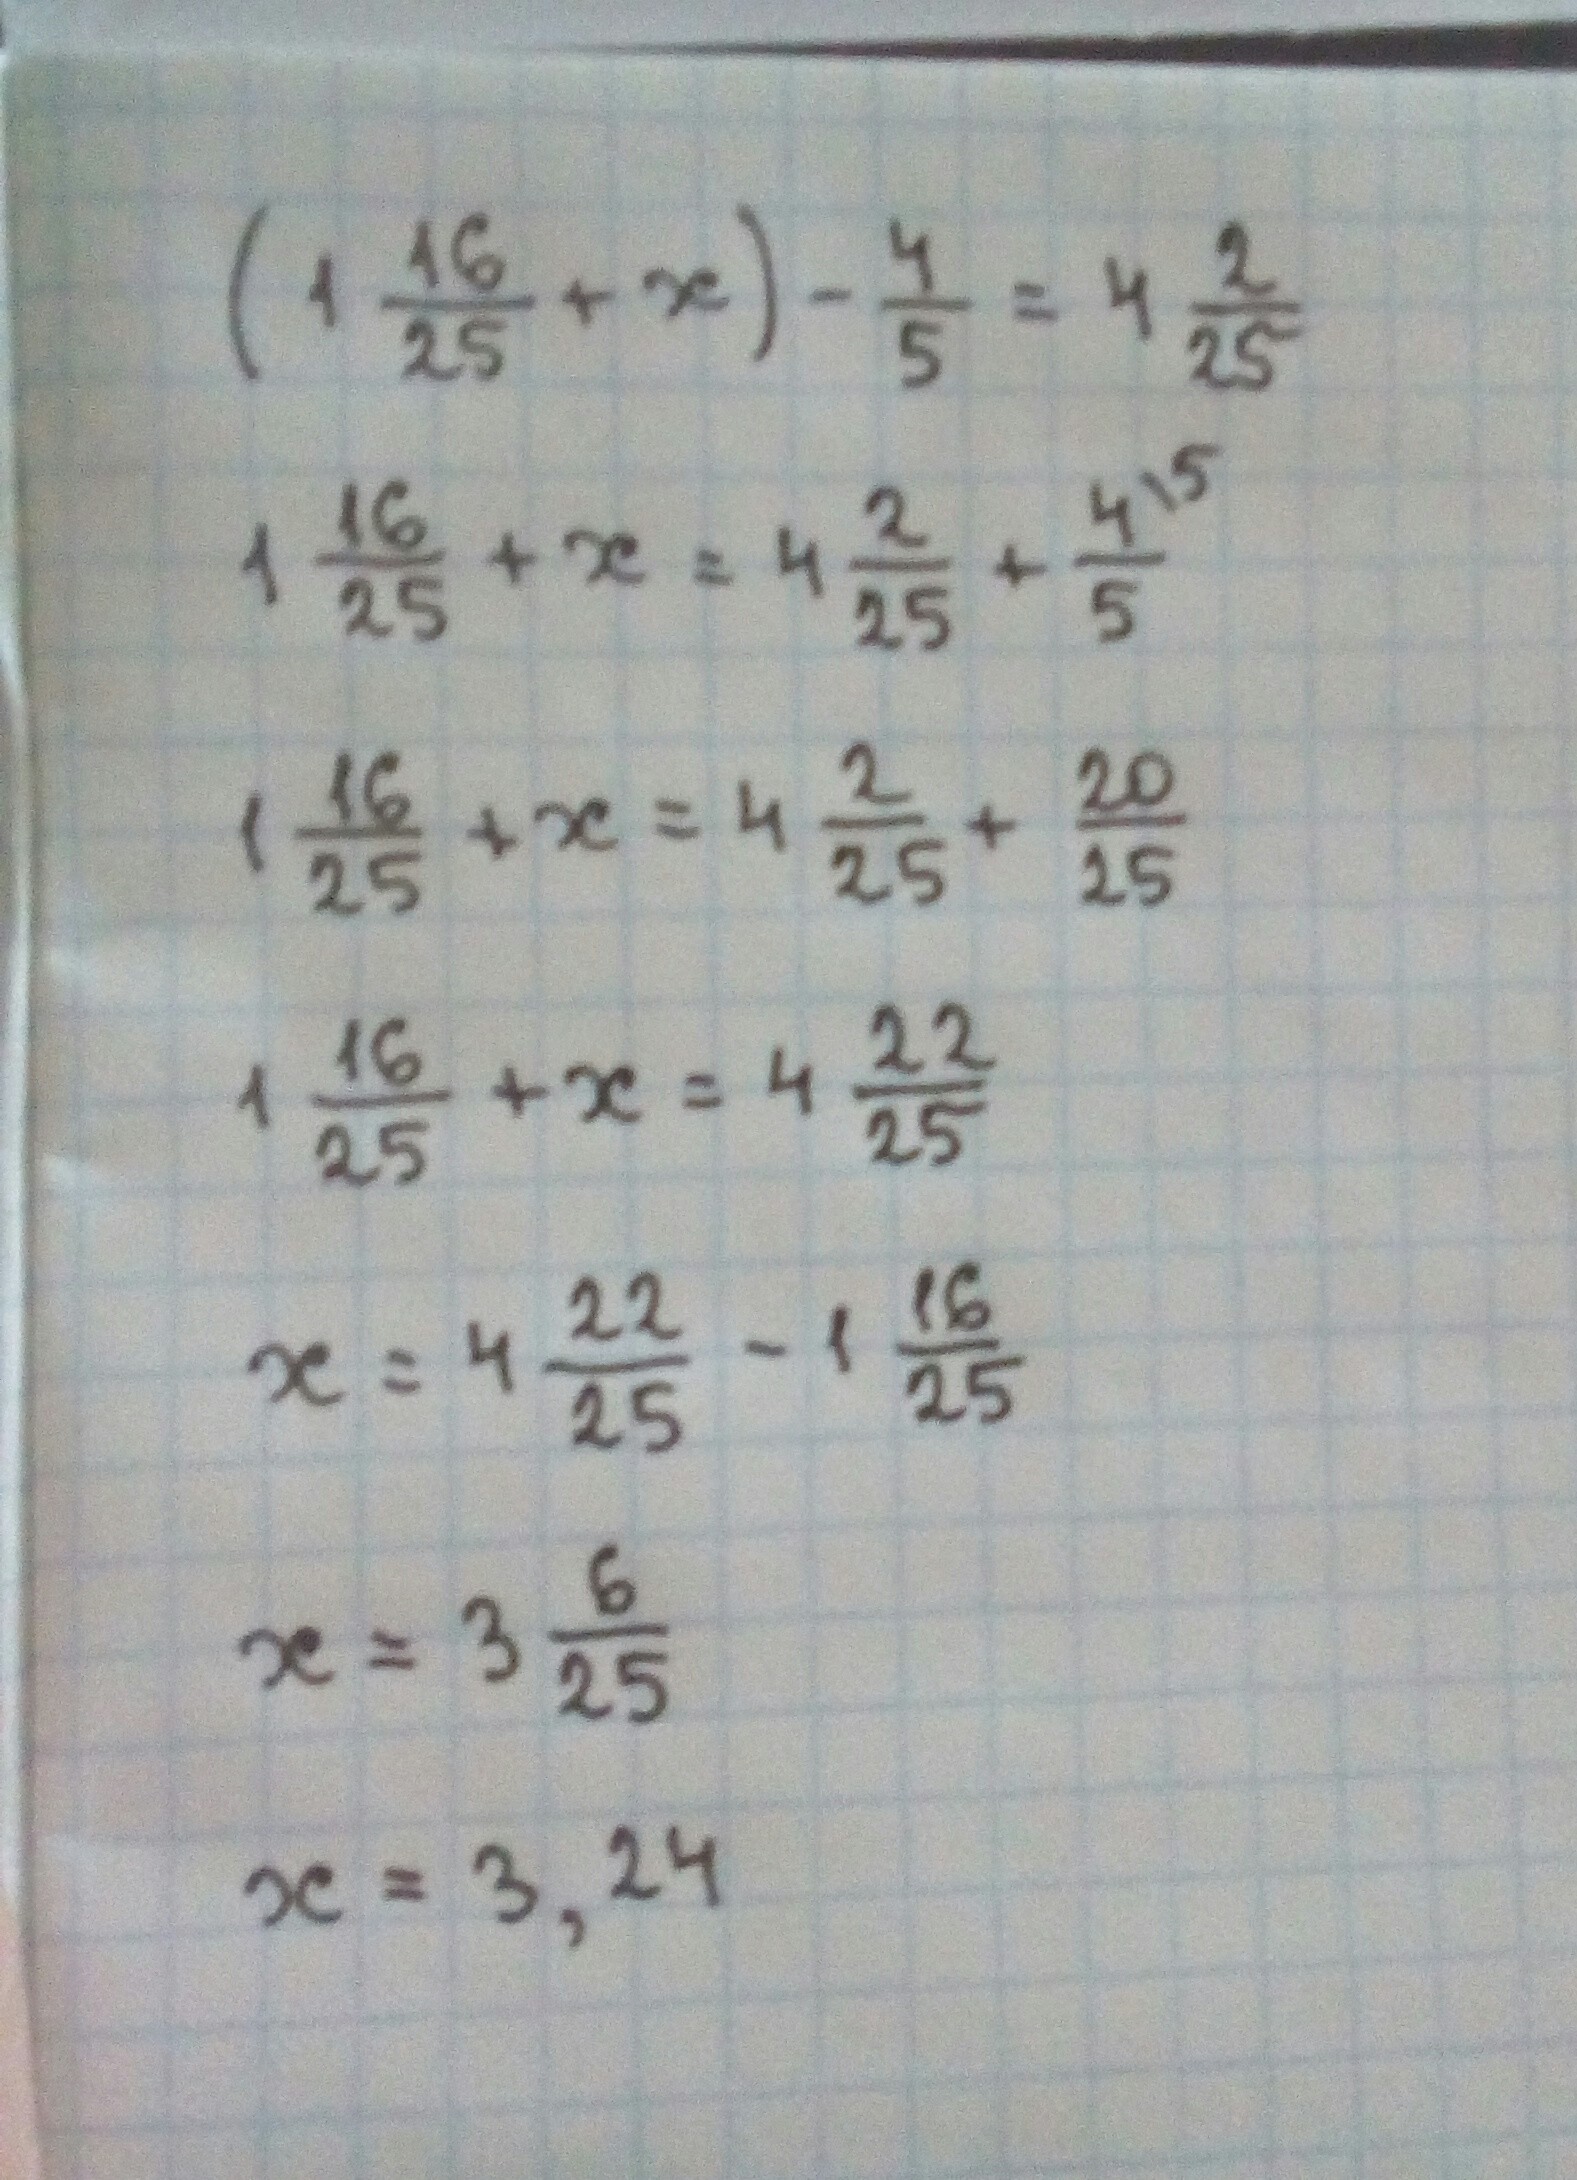 (1 16/25 + x) - 4/5 = 4 2/25
1 16/25 + x = 4 2/25 + 4\5/5
1 16/25 + x = 4 2/25 + 20/25
1 16/25 + x = 4 22/25
x = 4 22/25 - 1 16/25
x = 3 6/25
x = 3,24